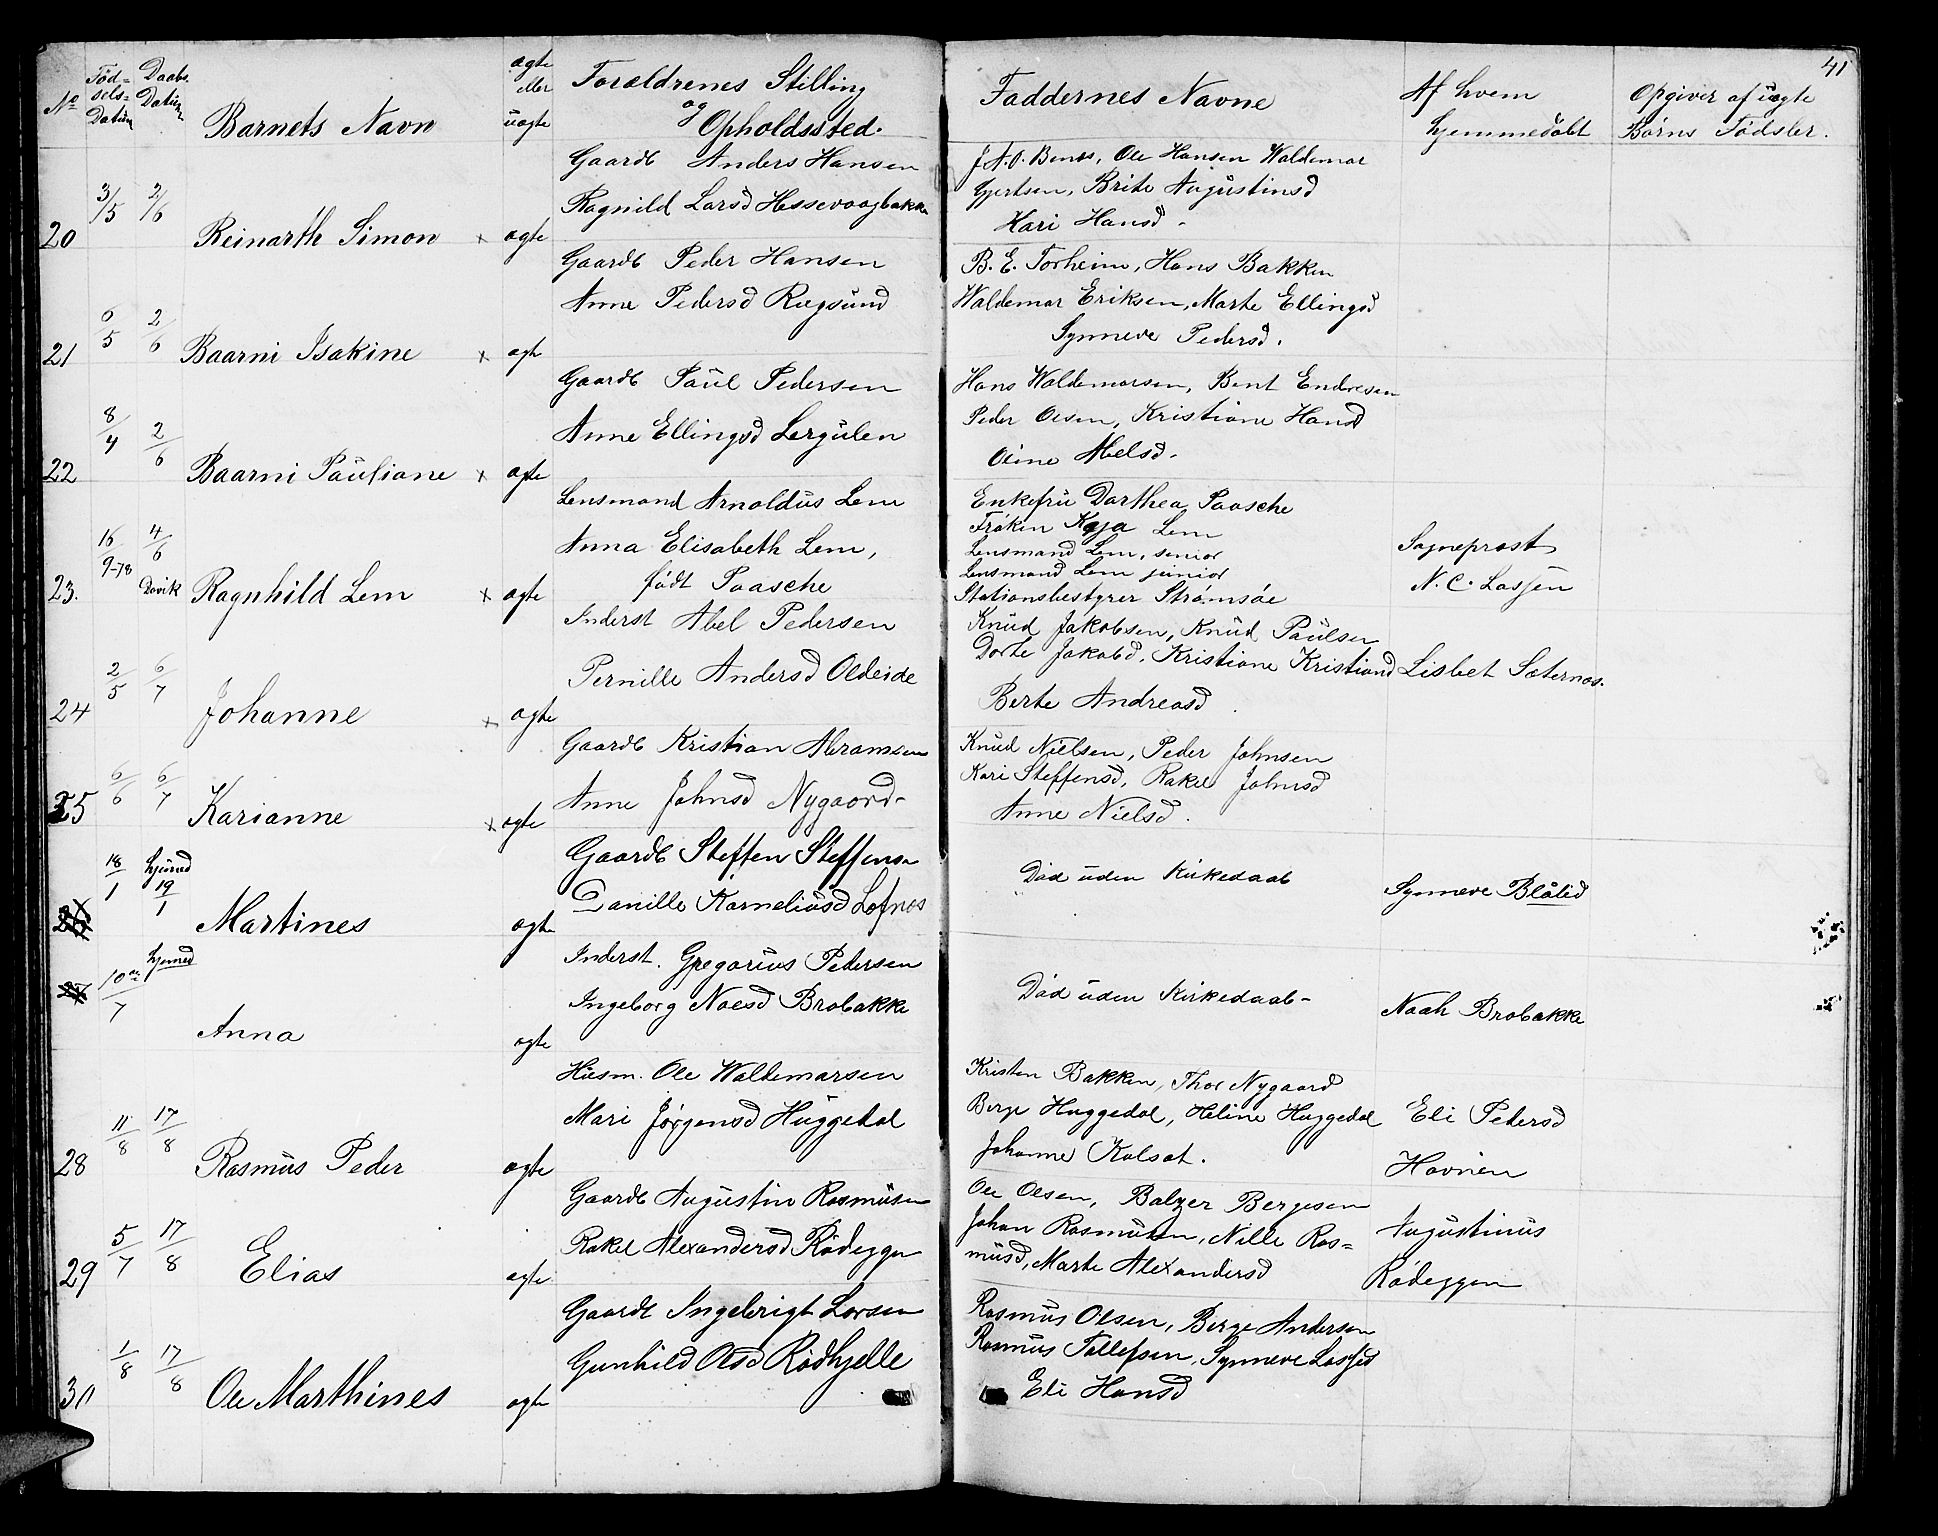 41
No
Fødselsdatum
Daabsdatum
Barnets Navn
ægte eller uægte
Forældrenes Stilling og Opholdssted.
Faddernes Navne
Af hvem hjemmedøbt
Opgiver af uægte Børns Fødsler.
20 3/5 2/6 Reinarth Simon x ægte
Gaardb Anders Hansen
Ragnild Larsd Hessevaagbakke
Ole Hansen Waldemar
Gjertsen, Brite Augustinsd
Kari Hansd.
21 6/5 2/6 Baarni Isakine x ægte
Gaardb Peder Hansen
Anne Pedersd Rugsund
B. E. Torheim, Hans Bakken
Waldemar Eriksen, Marte Ellingsd
Synneve Pedersd.
22 8/4 2/6 Baarni Pauliane x ægte
Gaardb Paul Pedersen
Anne Ellingsd Lergulen
Hans Waldemarsen, Bent Endresen
Peder Olsen, Kristiane Hansd
Oline Abelsd.
23. 16/9-78 4/6 Davik Ragnhild Lem x ægte
Lensmand Arnoldus Lem
Anna Elisabeth Lem,
født Paasche
Enkefru Dorthea Paasche
Frøken Kaja Lem
Lensmand Lem, senior
Lensmand Lem junior
Stationsbestyrer Strømsøe
Sogneprest
N. C. Lassen
24 2/5 6/7 Johanne x ægte
Inderst Abel Pedersen
Pernille Andersd Oldeide
Knud Jakobsen, Knud Paulsen
Dorte Jakobd, Kristiane Kristiansd
Berte Andreasd.
Lisbet Sæternes.
25 6/6 6/7 Karianne x ægte
Gaardb Kristian Abramsen
Anne Johnsd Nygaard
Knud Nielsen, Peder Johnsen
Kari Steffensd, Rakel Johnsd
Anne Nielsd.
26 18/1 hjemd 19/1 Martines ægte
Gaardb Steffen Steffensen
Danille Karneliusd Lofnes
Død uden Kirkedaab
Synneve Blålid
27 10de/7 hjemd Anna ægte
Inderst. Gregorius Pedersen
Ingeborg Noesd Brobakke
Død uden Kirkedaab-
Noah Brobakke
28 11/8 17/8 Rasmus Peder ægte
Husm. Ole Waldemarsen
Mari Jørgensd Huggedal
Kristen Bakken, Thor Nygaard
Berge Huggedal, Heline Huggedal
Johanne Kalsat.
Eli Pedersd
Havnen
29 5/7 17/8 Elias ægte
Gaardb Augustin Rasmusen
Rakel Alexandersd Rødeggen
Ole Olsen, Balzer Bergesen
Johan Rasmusen, Nille Ras=
musd, Marte Alexandersd
Augustinus
Rødeggen
30 1/8 17/8 Ole Marthines ægte
Gaardb Ingebrigt Larsen
Gunhild Olsd Rødhjelle
Rasmus Olsen, Berge Andersen
Rasmus Tollefsen, Synneve Lassed
Eli Hansd